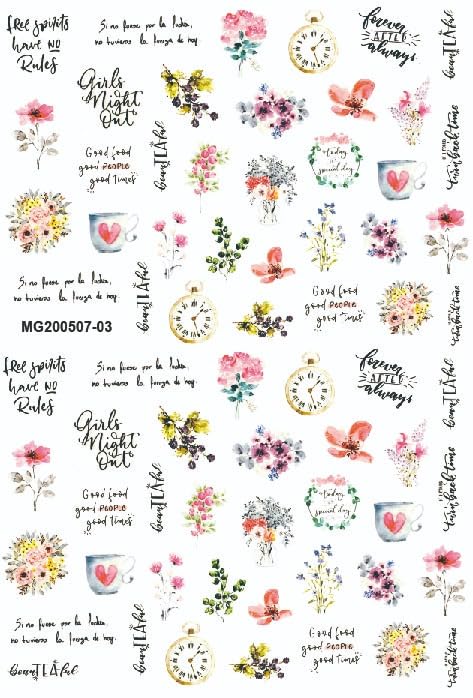 free spirits
have NO
Rules
Si no fuese por la lucha,
no tuviera la fuerza de hoy.
forever
AFTER
always
Girls
Night
Out
turn back time
Good food
good PEOPLE
good times
today
a
special day
Si no fuese por la lucha,
no tuviera la fuerza de hoy.
Good food
good PEOPLE
good times
MG200507-03
turn back time
free spirits
have NO
Rules
Si no fuese por la lucha,
no tuviera la fuerza de hoy.
forever
AFTER
always
Girls
Night
Out
turn back time
Good food
good PEOPLE
good times
today
a
special day
Si no fuese por la lucha,
no tuviera la fuerza de hoy.
Good food
good PEOPLE
good times
turn back time